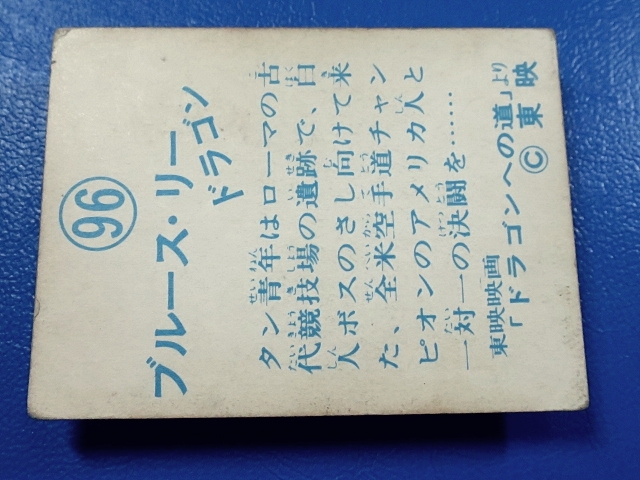 96
ブルース・リー
ドラゴン
タン青年はローマの古
代競技場の遺跡で、白
人ボスのさし向けて来
た、全米空手道チャン
ピオンのアメリカ人と
一対一の決闘を……
東映映画
「ドラゴンへの道」より
Ⓒ東映